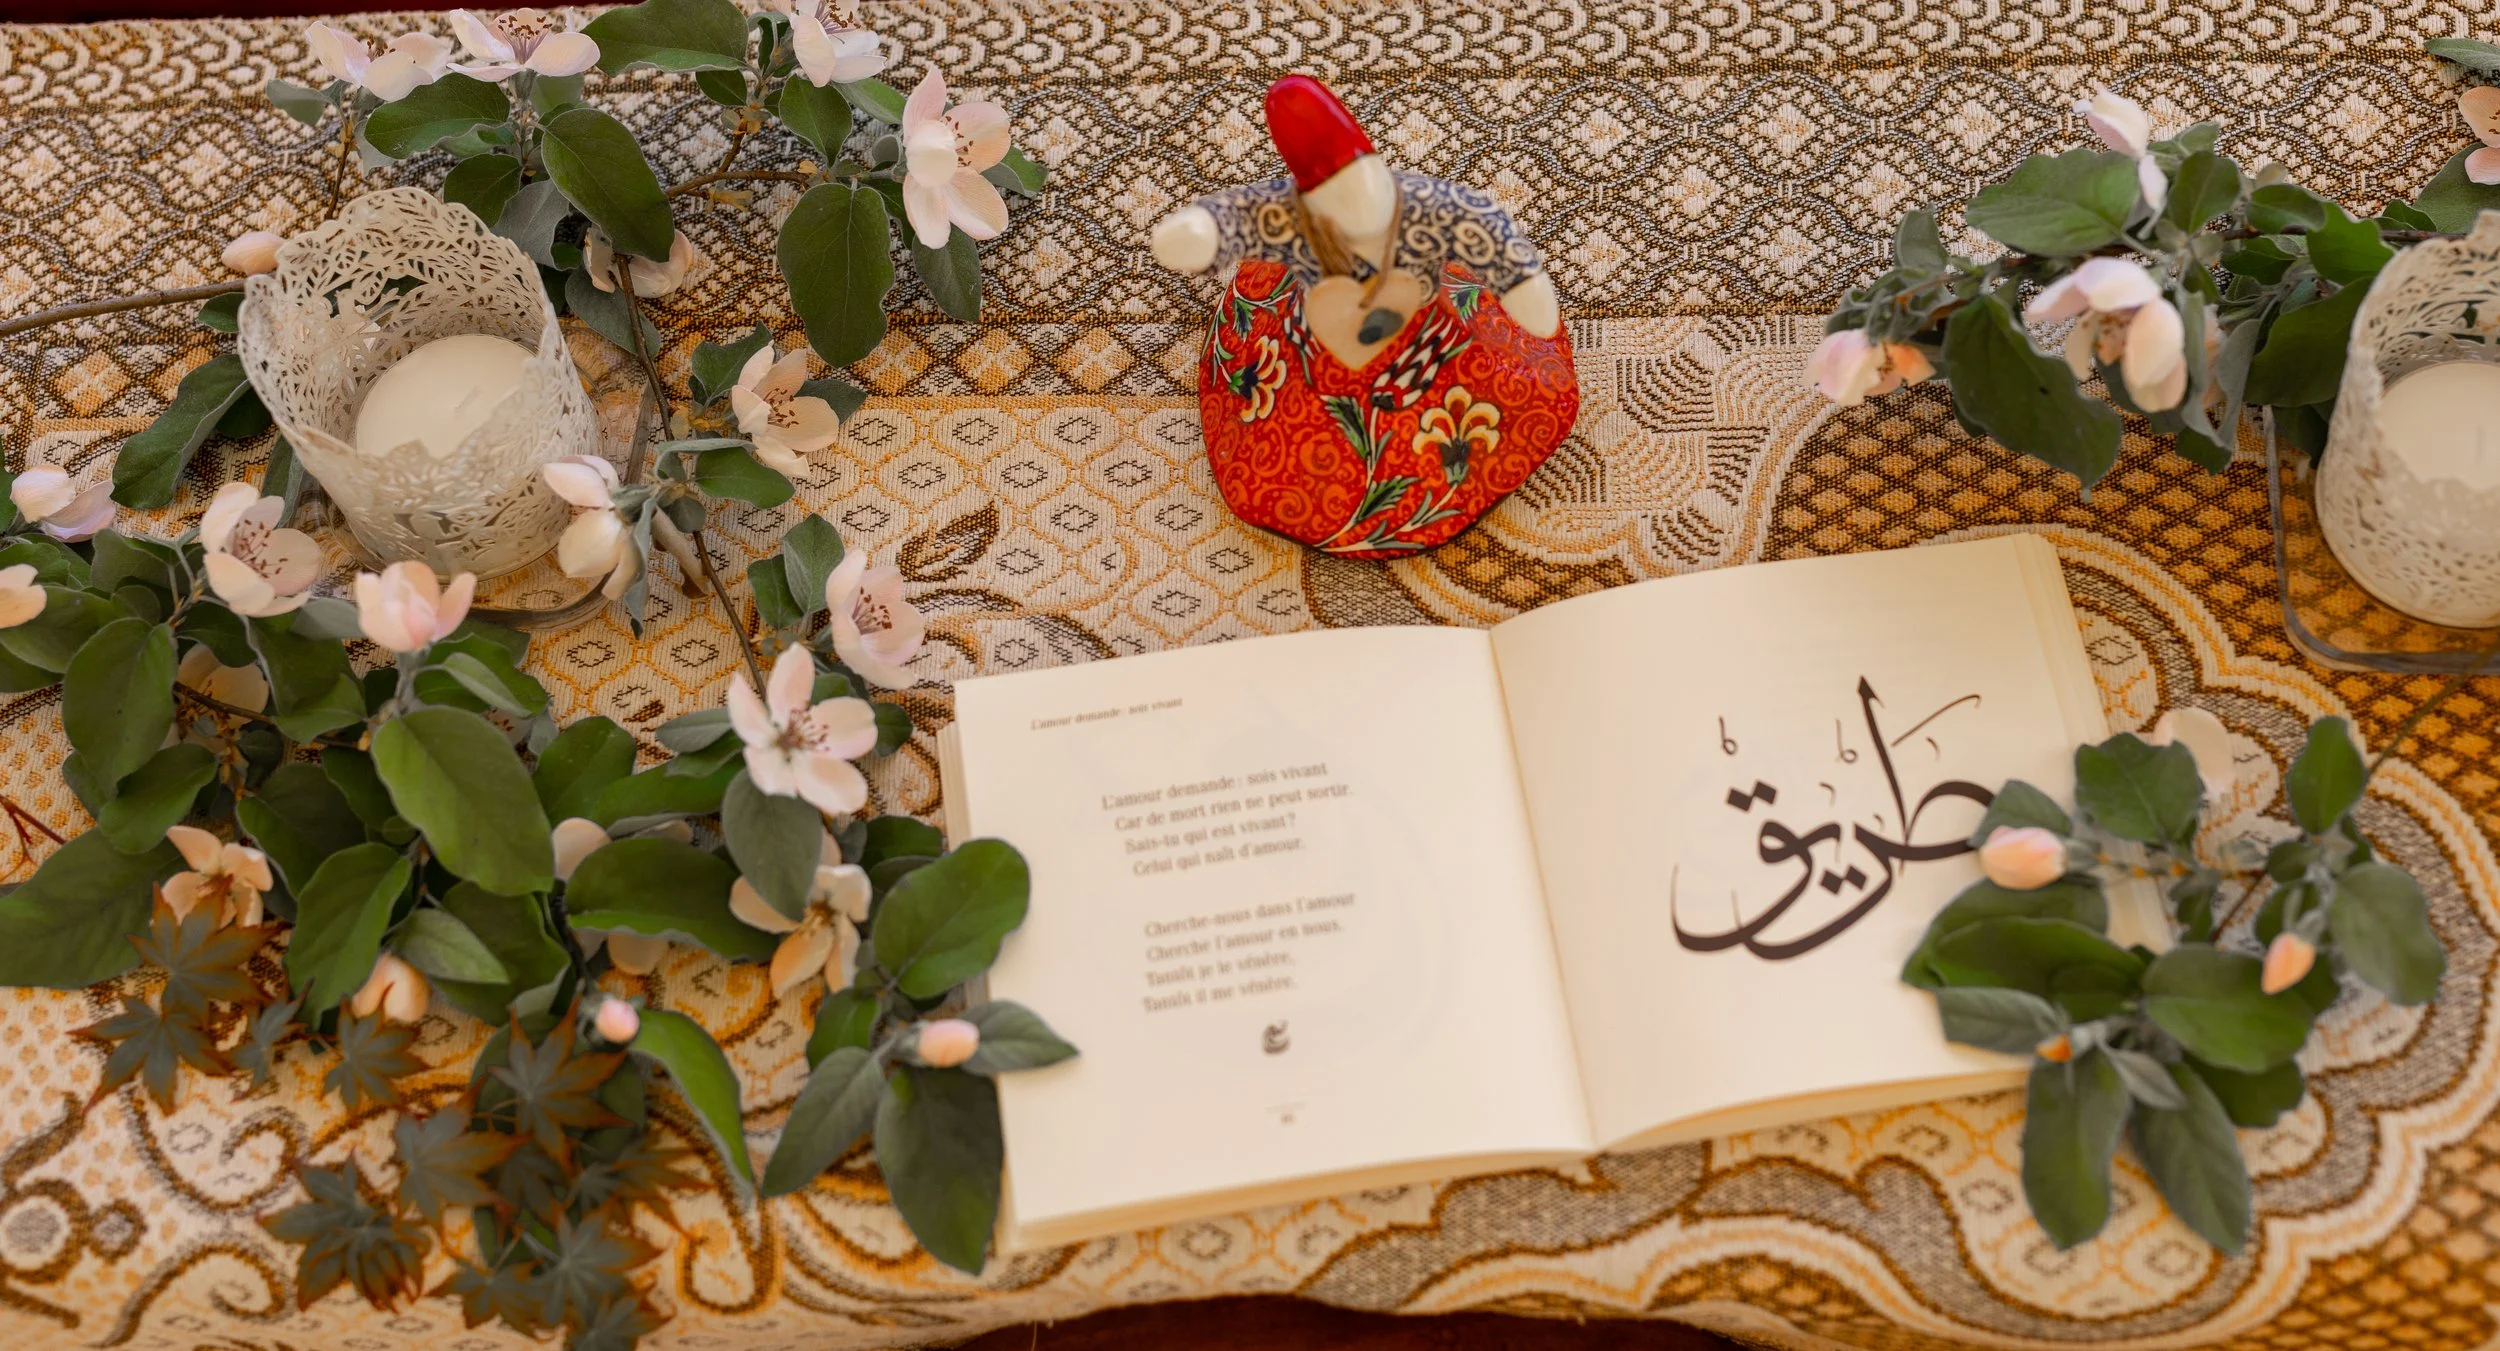 L'amour demande : sois vivant
L'amour demande : sois vivant
Car de mort rien ne peut sortir.
Sais-tu qui est vivant?
Celui qui naît d'amour.
Cherche-nous dans l'amour
Cherche l'amour en nous.
Tantôt je le vénère,
Tantôt il me vénère.
طريق